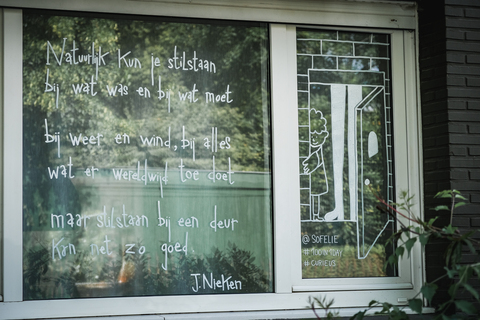 Natuurlijk kun je stilstaan
bij wat was en bij wat moet
bij weer en wind, bij alles
wat er wereldwijd toe doet
maar stilstaan bij een deur
kan net zo goed
J. Nieken
@ SOFELIE